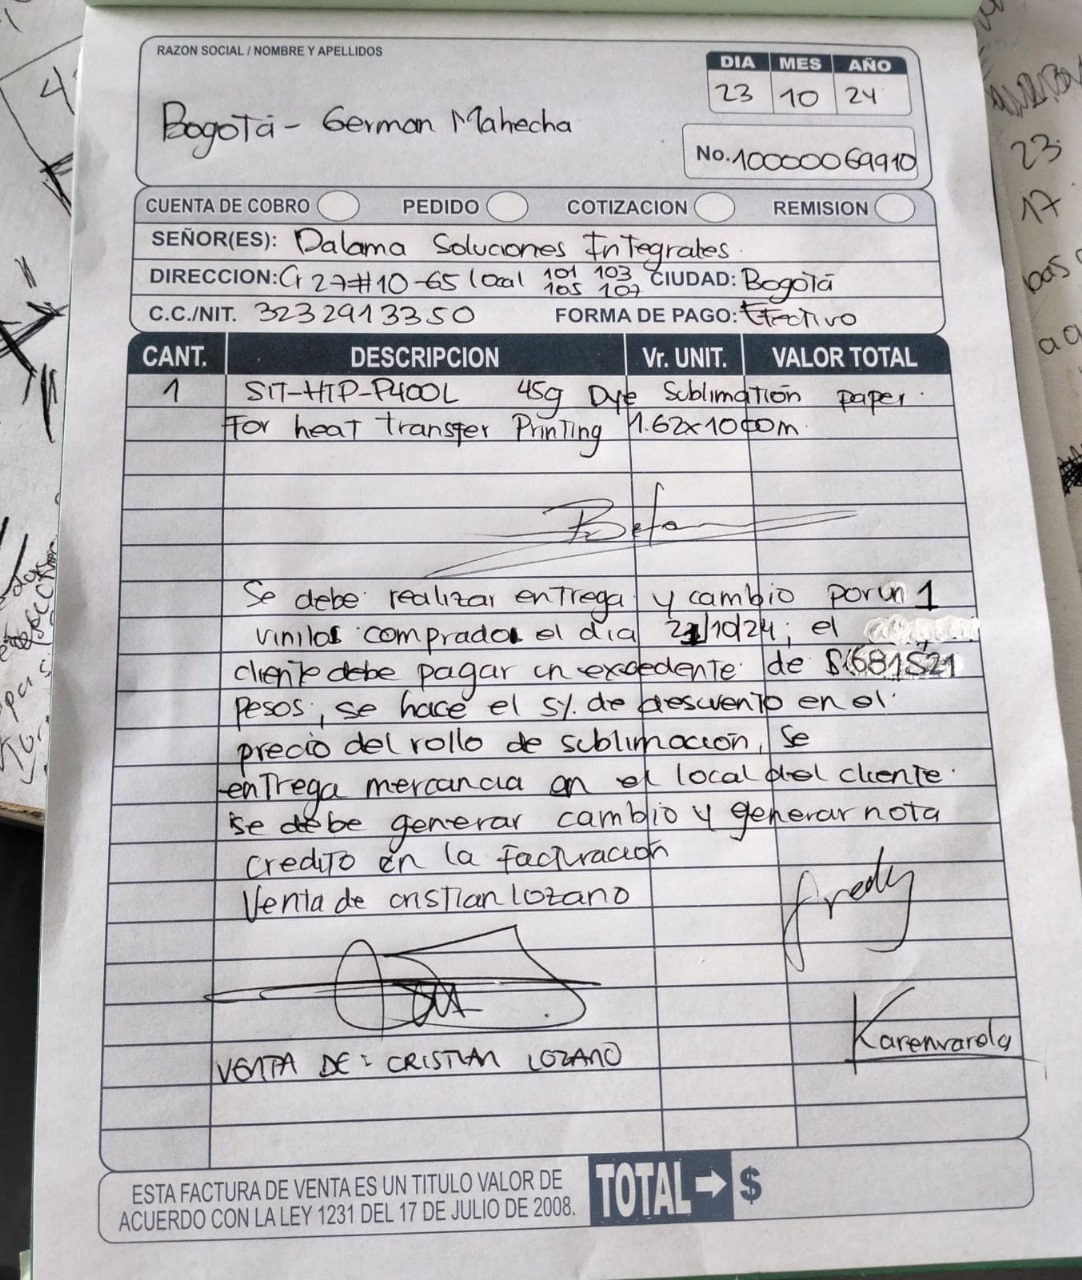 RAZON SOCIAL / NOMBRE Y APELLIDOS
DIA MES AÑO
23 10 24
Bogotá - German Mahecha
No. 10000069910
CUENTA DE COBRO PEDIDO COTIZACION REMISION
SEÑOR(ES): Dalama Soluciones Integrales.
DIRECCION: Cr 27#10-65 local 101 103 105 107 CIUDAD: Bogotá
C.C./NIT. 3232913350 FORMA DE PAGO: Efectivo
CANT. DESCRIPCION Vr. UNIT. VALOR TOTAL
1 SIT-HTP-P400L 45g Dye Sublimation paper.
For heat transfer Printing 1.62x1000m.
Se debe realizar entrega y cambio por un 1
vinilo comprado el dia 21/10/24; el
cliente debe pagar un excedente de $681521
Pesos, se hace el 5% de descuento en el
precio del rollo de sublimación, Se
entrega mercancia en el local del cliente.
se debe generar cambio y generar nota
credito en la facturación
Venta de cristian Lozano
Fredy
Karenvarela
VENTA DE: CRISTIAN LOZANO
ESTA FACTURA DE VENTA ES UN TITULO VALOR DE
ACUERDO CON LA LEY 1231 DEL 17 DE JULIO DE 2008.
TOTAL → $
23
17